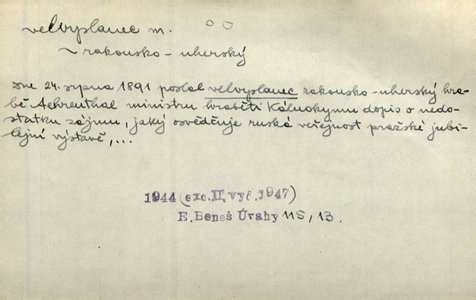 velvyslanec m.
~ rakousko-uherský
Dne 24. srpna 1891 poslal velvyslanec rakousko-uherský hra-
bě Aehrenthal ministru hraběti Kálnokymu dopis o nedo-
statku zájmu, jaký osvědčuje ruská veřejnost pražské jubi-
lejní výstavě, ...
1944 (exc. II. vyd. 1947)
E. Beneš Úvahy 115, 13.